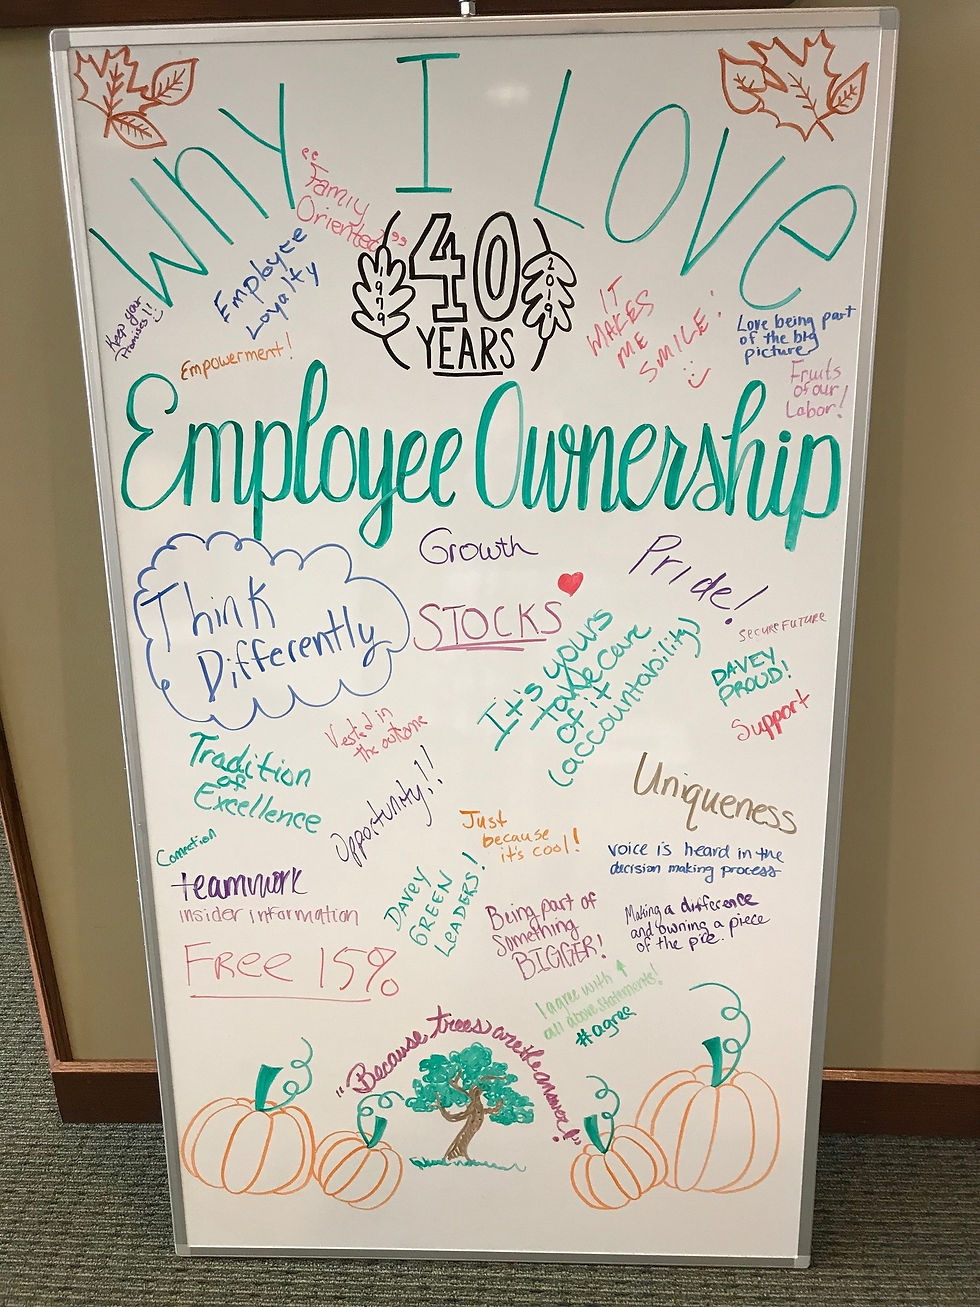 Why I Love
"Family
Oriented"
Employee
Loyalty
Keep your
Promises!!
Empowerment!
40
1979
2019
YEARS
IT
MAKES
ME
SMILE!
Love being part
of the big
picture
Fruits
of our
Labor!
Employee Ownership
Think
Differently
Growth
STOCKS
Pride!
SECURE FUTURE
It's yours
take care
of it
(accountability)
DAVEY
PROUD!
Support
Vested in
the outcome
Tradition
of
Excellence
Opportunity!!
Uniqueness
Connection
Just
because
it's cool!
voice is heard in the
decision making process
teamwork
insider information
DAVEY
GREEN
LEADERS!
Being part of
Something
BIGGER!
Making a difference
and owning a piece
of the pie.
FREE 15%
I agree with ↑
all above statements!
#agree
"Because trees are the answer!"